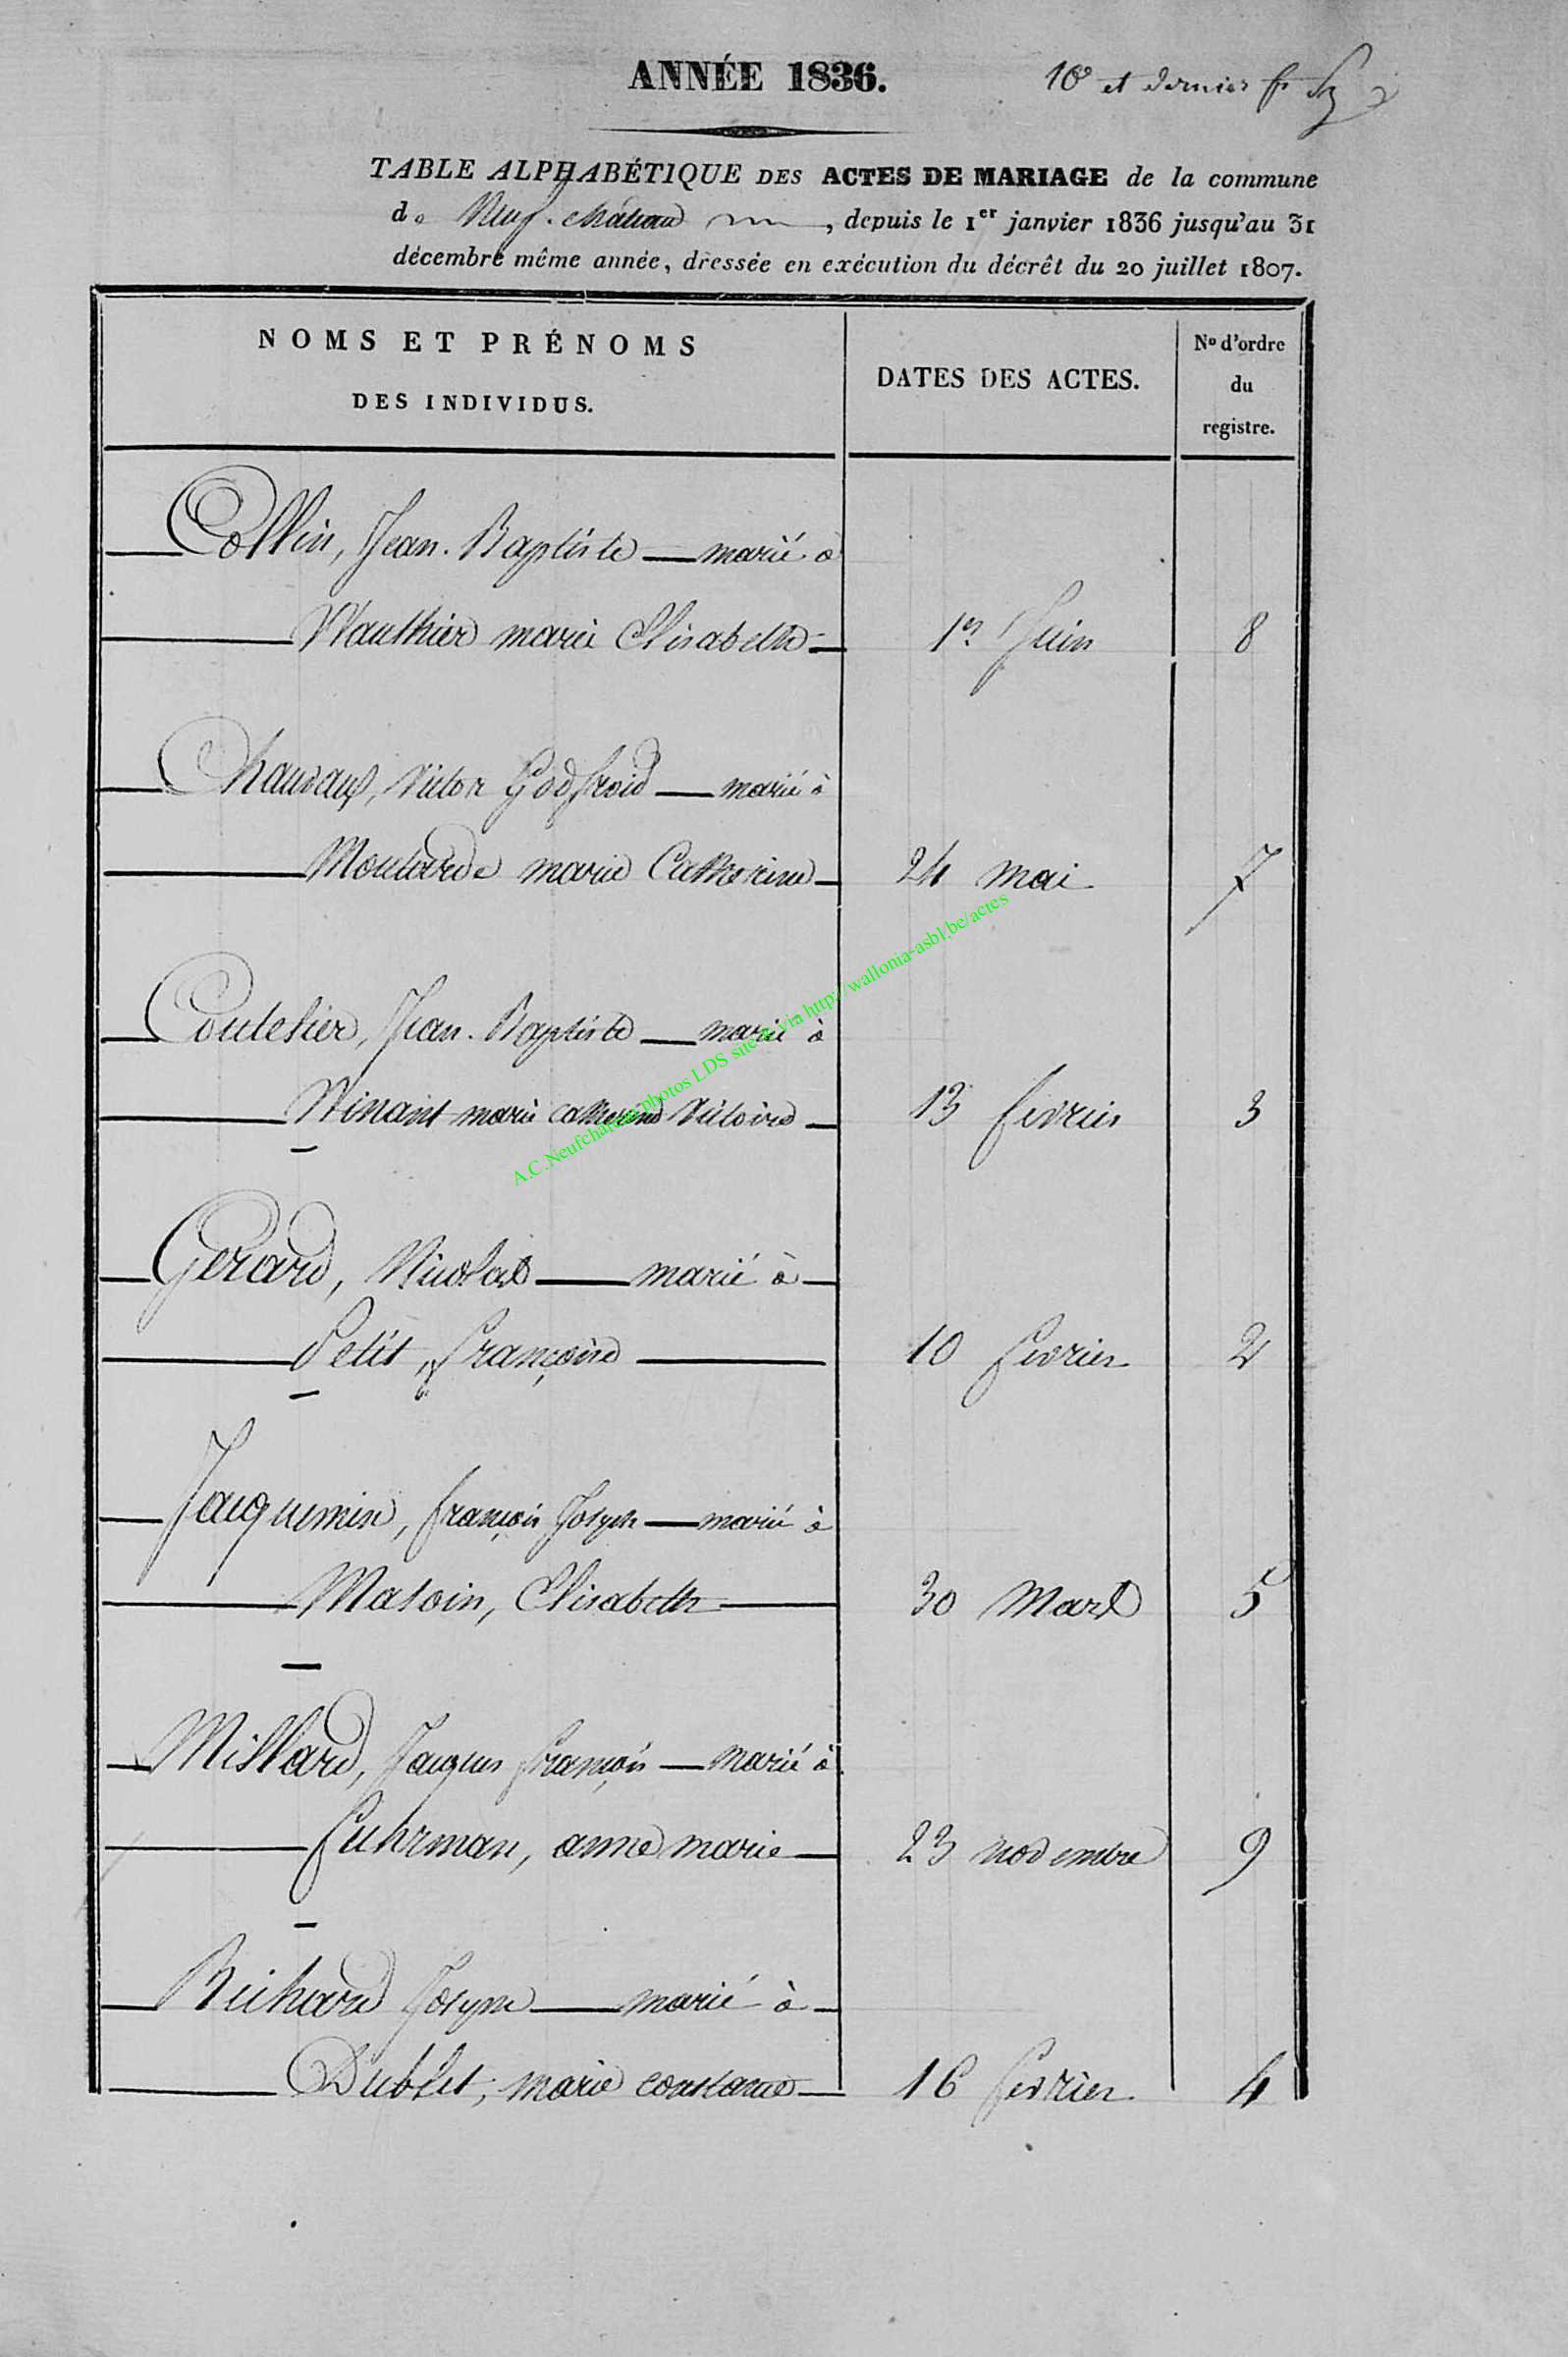 ANNÉE 1836.
10e et dernier f.
TABLE ALPHABÉTIQUE DES ACTES DE MARIAGE de la commune
de Neuf-château, depuis le 1er janvier 1836 jusqu'au 31
décembre même année, dressée en exécution du décrêt du 20 juillet 1807.
NOMS ET PRÉNOMS
DES INDIVIDUS.
DATES DES ACTES.
No d'ordre
du
registre.
Collin, Jean-Baptiste — marié à
Wauthier marie Elisabeth — 1er Juin 8
Chauvaux, Victor Godfroid — marié à
Moutarde marie Catherine — 24 mai 7
Coutelier, Jean-Baptiste — marié à
Winant marie catherine Victoire — 13 fevrier 3
Gerard, Nicolas — marié à —
Petit, françoise — 10 fevrier 2
Jacquemin, françois Joseph — marié à
Masoin, Elisabeth — 30 Mars 5
Millard, Jacques françois — Marié à
fuhrman, anne marie — 23 novembre 9
Richard Joseph — marié à —
Dublet, marie constance — 16 fevrier 4
A.C.Neufchateau photos LDS site & via http://wallonia-asbl.be/actes